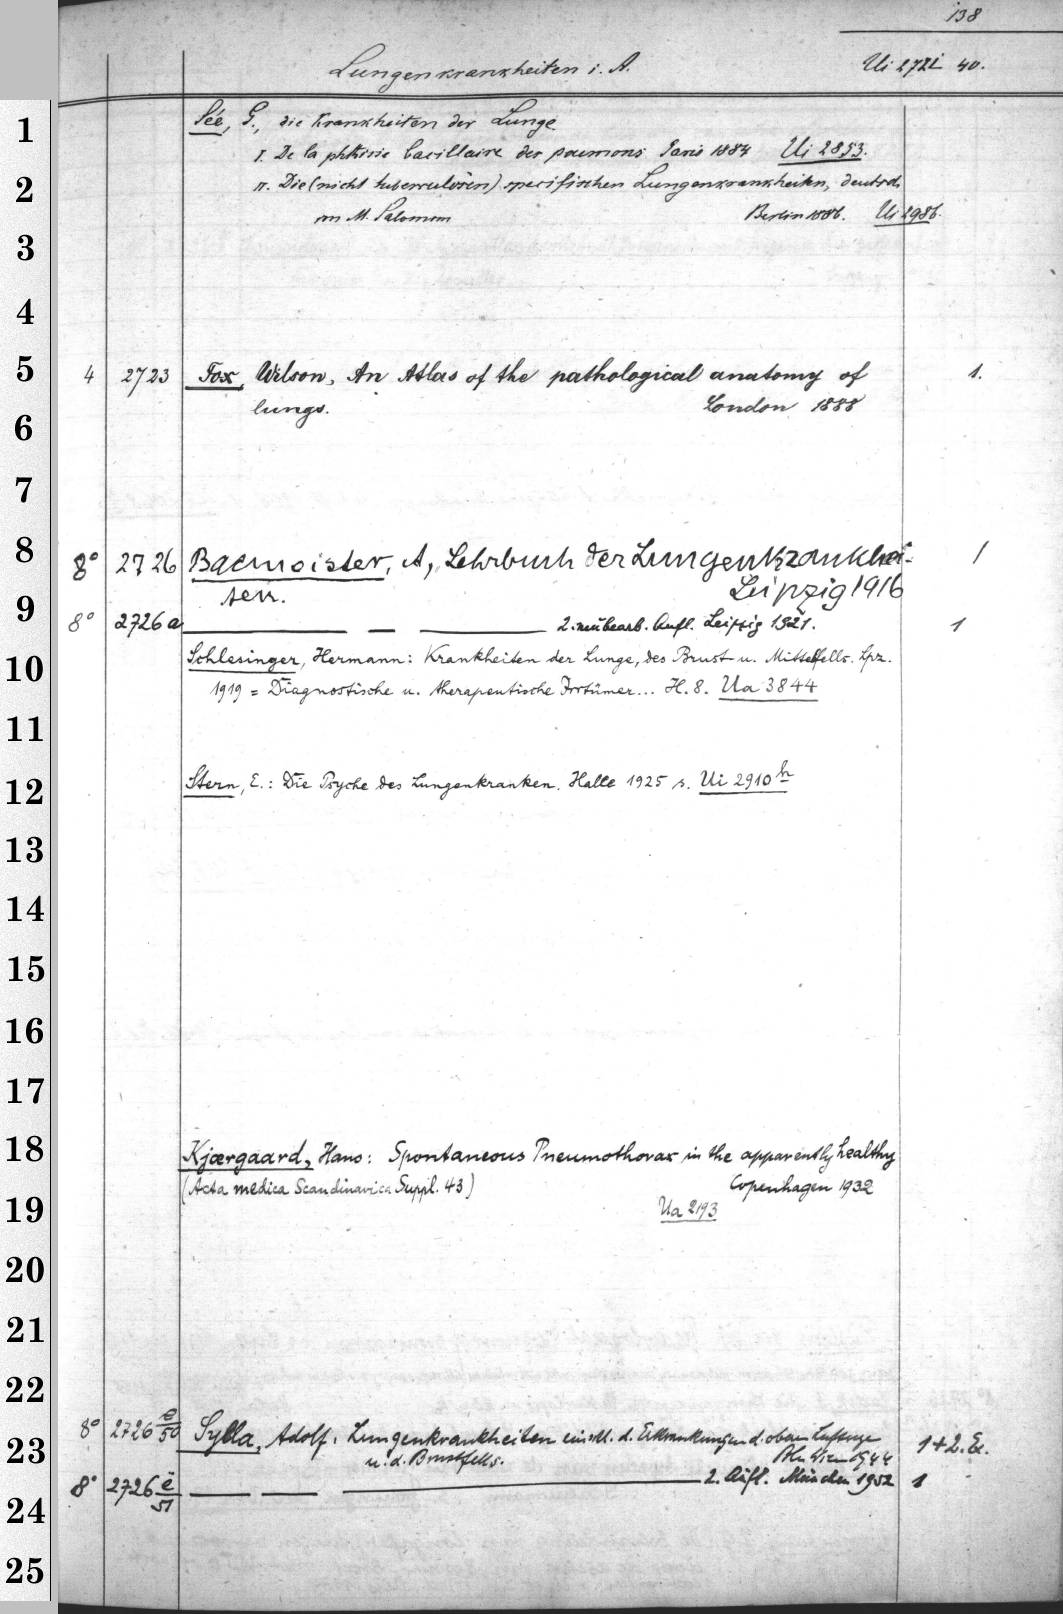 138
Lungenkrankheiten i. A.
Ui 2721 40.
1
Sée, G., die Krankheiten der Lunge
I. De la phtisie bacillaire des poumons Paris 1884 Ui 2853.
2
II. Die (nicht tuberculösen) specifischen Lungenkrankheiten, deutsch
von M. Salomon Berlin 1886. Ui 2986.
3
4
5
4 2723 Fox, Wilson, An Atlas of the pathological anatomy of 1.
lungs. London 1888
6
7
8
8° 2726 Bacmeister, A, Lehrbuch der Lungenkrankhei- 1
ten. Leipzig 1916
9
8° 2726a 2. neubearb. Aufl. Leipzig 1921. 1
10
Schlesinger, Hermann: Krankheiten der Lunge, des Brust u. Mittelfells. Lpz.
1919 = Diagnostische u. therapeutische Irrtümer... H. 8. Ua 3844
11
12
Stern, E.: Die Psyche des Lungenkranken. Halle 1925 s. Ui 2910 h
13
14
15
16
17
18
Kjærgaard, Hans: Spontaneous Pneumothorax in the apparently healthy
(Acta medica Scandinavica Suppl. 43) Copenhagen 1932
19
Ua 2193
20
21
22
8° 2726 e/50 Sylla, Adolf: Lungenkrankheiten einschl. d. Erkrankungen d. oberen Luftwege 1+2. Ex.
23
u. d. Brustfells. Wien 1944
8° 2726 e/51 2. Aufl. München 1952 1
24
25